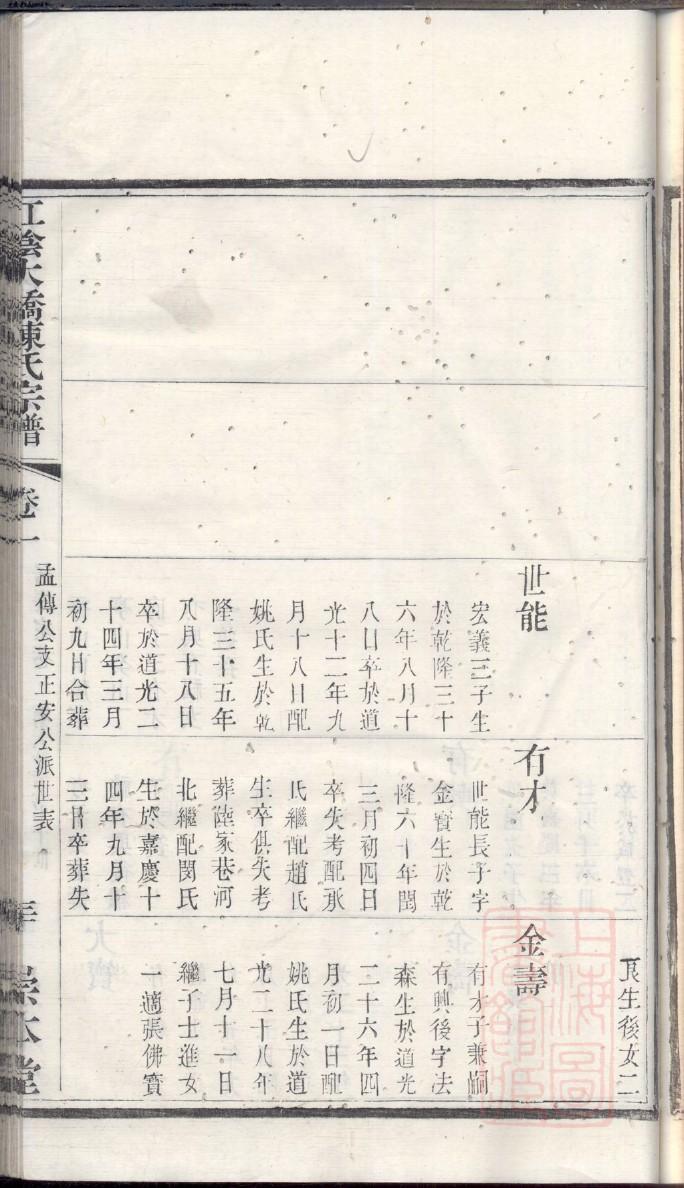 良生後女二
世能
宏義三子生
於乾隆三十
六年八月十
八日卒於道
光十二年九
月十八日配
姚氏生於乾
隆三十五年
八月十八日
卒於道光二
十四年三月
初九日合葬
有才
世能長子字
金寶生於乾
隆六十年閏
三月初四日
卒失考配承
氏繼配趙氏
生卒俱失考
葬陸家巷河
北繼配閔氏
生於嘉慶十
四年九月十
三日卒葬失
金壽
有才子兼嗣
有興後字法
森生於道光
二十六年四
月初一日配
姚氏生於道
光二十八年
七月十一日
繼子士進女
一適張佛寶
孟傳公支正安公派世表
江陰大橋陳氏宗譜
卷一
崇本堂
上海圖